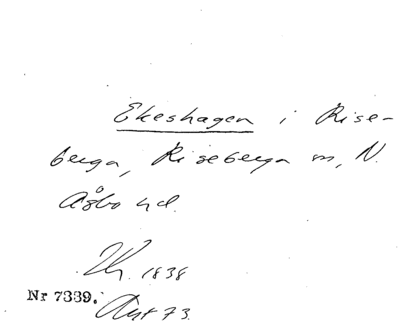 Ekeshagen i Rise-
berga, Riseberga sn, N.
Åsbo hd.
1838
Nr 7339. Avt 73.